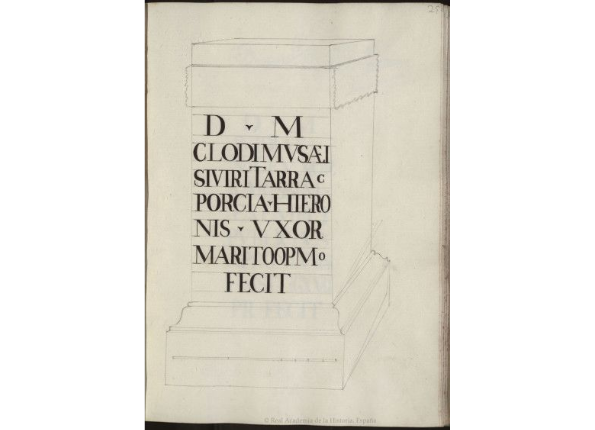 D ˅ M
CLODIMVSÆI
SIVIRITARRAC
PORCIA˅HIERO
NIS ˅ VXOR
MARITOOPMO
FECIT
© Real Academia de la Historia, España